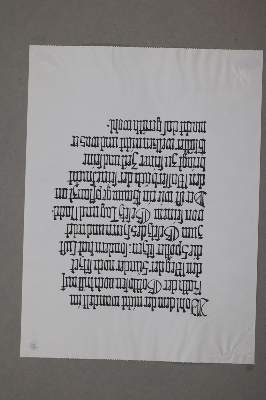 Wohl dem der nicht wandelt im
Rath der Gottlosen noch tritt auf
den Weg der Sünder noch sitzet
die Spötter sitzen: sondern hat Lust
zum Gesetz des Herrn und redet
von seinem Gesetz Tag und Nacht.
Der ist wie ein Baum gepflanzt an
den Wasser der seine Frucht
bringt zu seiner Zeit und seine
Blätter verwelken nicht und was er
macht das geräth wohl.